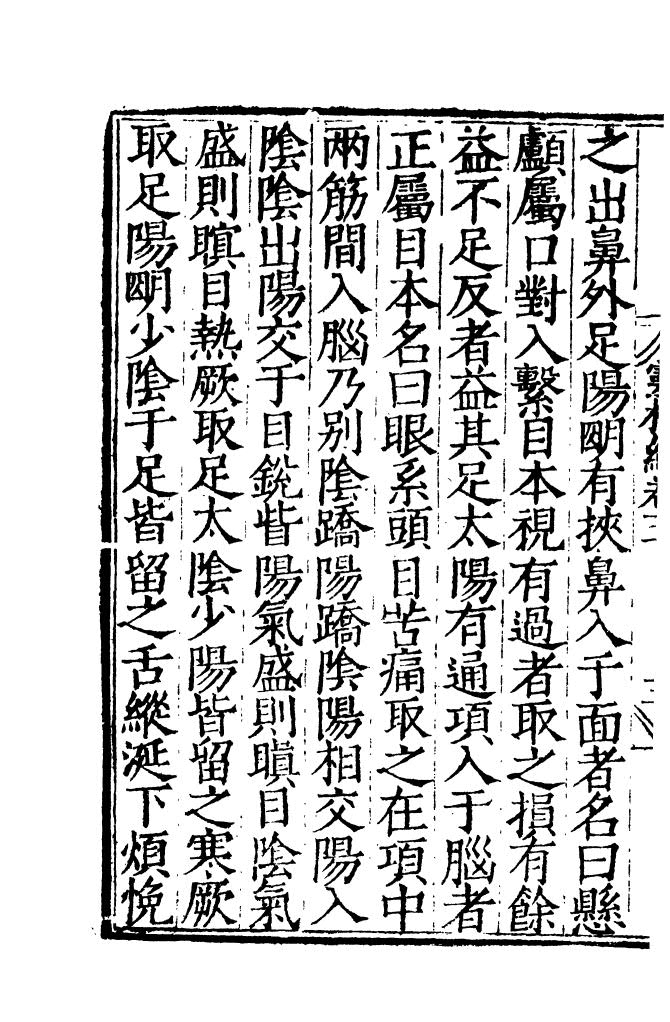 之出鼻外足陽明有挾鼻入于面者名曰懸
顱屬口對入繫目本視有過者取之損有餘
益不足反者益其足太陽有通項入于腦者
正屬目本名曰眼系頭目苦痛取之在項中
兩筋間入腦乃别陰蹻陽蹻陰陽相交陽入
陰陰出陽交于目銳眥陽氣盛則瞋目陰氣
盛則瞑目熱厥取足太陰少陽皆留之寒厥
取足陽明少陰于足皆留之舌縱涎下煩悗